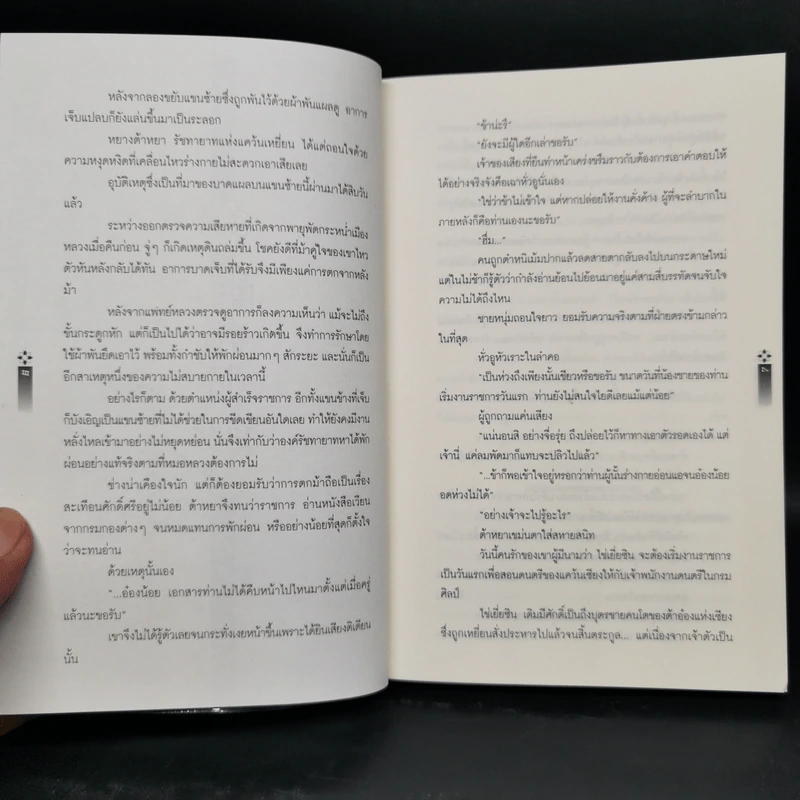 หลังจากลองขยับแขนซ้ายซึ่งถูกพันไว้ด้วยผ้าพันแผลดู อาการ
เจ็บแปลบก็ยังแล่นขึ้นมาเป็นระลอก
หยางต้าหยา รัชทายาทแห่งแคว้นเหยี่ยน ได้แต่ถอนใจด้วย
ความหงุดหงิดที่เคลื่อนไหวร่างกายไม่สะดวกเอาเสียเลย
อุบัติเหตุซึ่งเป็นที่มาของบาดแผลบนแขนซ้ายนี้ผ่านมาได้สิบวัน
แล้ว
ระหว่างออกตรวจความเสียหายที่เกิดจากพายุพัดกระหน่ำเมือง
หลวงเมื่อคืนก่อน จู่ๆ ก็เกิดเหตุดินถล่มขึ้น โชคยังดีที่ม้าคู่ใจของเขาไหว
ตัวหันหลังกลับได้ทัน อาการบาดเจ็บที่ได้รับจึงมีเพียงแค่การตกจากหลัง
ม้า
หลังจากแพทย์หลวงตรวจดูอาการก็ลงความเห็นว่า แม้จะไม่ถึง
ขั้นกระดูกหัก แต่ก็เป็นไปได้ว่าอาจมีรอยร้าวเกิดขึ้น จึงทำการรักษาโดย
ใช้ผ้าพันยึดเอาไว้ พร้อมทั้งกำชับให้พักผ่อนมากๆ สักระยะ และนั่นก็เป็น
อีกสาเหตุหนึ่งของความไม่สบายกายในเวลานี้
อย่างไรก็ตาม ด้วยตำแหน่งผู้สำเร็จราชการ อีกทั้งแขนข้างที่เจ็
บก็บังเอิญเป็นแขนซ้ายที่ไม่ได้ช่วยในการขีดเขียนอันใดเลย ทำให้ยังคงมีงาน
หลั่งไหลเข้ามาอย่างไม่หยุดหย่อน นั่นจึงเท่ากับว่าองค์รัชทายาทหาได้พัก
ผ่อนอย่างแท้จริงตามที่หมอหลวงต้องการไม่
ช่างน่าเคืองใจนัก แต่ก็ต้องยอมรับว่าการตกม้าถือเป็นเรื่อง
สะเทือนศักดิ์ศรีอยู่ไม่น้อย ต้าหยาจึงทนว่าราชการ อ่านหนังสือเวียน
จากกรมกองต่างๆ จนหมดแทนการพักผ่อน หรืออย่างน้อยที่สุดก็ตั้งใจ
ว่าจะทนอ่าน
ด้วยเหตุนั้นเอง
"...อ๋องน้อย เอกสารท่านไม่ได้คืบหน้าไปไหนมาตั้งแต่เมื่อครู่
แล้วนะขอรับ"
เขาจึงไม่ได้รู้ตัวเลยจนกระทั่งเงยหน้าขึ้นเพราะได้ยินเสียงติเตียน
นั้น
"ข้าน่ะรึ"
"ยังจะมีผู้ใดอีกเล่าขอรับ"
เจ้าของเสียงที่ยืนทำหน้าเคร่งขรึมราวกับต้องการเอาคำตอบให้
ได้อย่างจริงจังคือเฉาหั่วอูนั่นเอง
"ใช่ว่าข้าไม่เข้าใจ แต่หากปล่อยให้งานคั่งค้าง ผู้ที่จะลำบากใน
ภายหลังก็คือท่านเองนะขอรับ"
"ฮึ่ม..."
คนถูกตำหนิเม้มปากแล้วลดสายตากลับลงไปบนกระดาษใหม่
แต่ในไม่ช้าก็รู้ตัวว่ากำลังอ่านย้อนไปย้อนมาอยู่แค่สามสี่บรรทัดจนจับใจ
ความไม่ได้ถึงไหน
ชายหนุ่มถอนใจยาว ยอมรับความจริงตามที่ฝ่ายตรงข้ามกล่าว
ในที่สุด
หั่วอูหัวเราะในลำคอ
"เป็นห่วงถึงเพียงนั้นเชียวหรือขอรับ ขนาดวันที่น้องชายของท่าน
เริ่มงานราชการวันแรก ท่านยังไม่สนใจไยดีเลยแม้แต่น้อย"
ผู้ถูกถามแค่นเสียง
"แน่นอนสิ อย่างจื่อรุ่ย ถึงปล่อยไว้ก็หาทางเอาตัวรอดเองได้ แต่
เจ้านี่ แค่ลมพัดมาก็แทบจะปลิวไปแล้ว"
"...ข้าก็พอเข้าใจอยู่หรอกว่าท่านผู้นั้นร่างกายอ่อนแอจนอ๋องน้อย
อดห่วงไม่ได้"
"อย่างเจ้าจะไปรู้อะไร"
ต้าหยาเขม่นตาใส่สหายสนิท
วันนี้คนรักของเขาผู้มีนามว่า ไช่เยี่ยซิน จะต้องเริ่มงานราชการ
เป็นวันแรกเพื่อสอนดนตรีของแคว้นเซียงให้กับเจ้าพนักงานดนตรีในกรม
ศิลป์
ไช่เยี่ยซิน เดิมมีศักดิ์เป็นถึงบุตรชายคนโตของต้าอ๋องแห่งเซียง
ซึ่งถูกเหยี่ยนสั่งประหารไปแล้วจนสิ้นตระกูล... แต่เนื่องจากเจ้าตัวเป็น
7